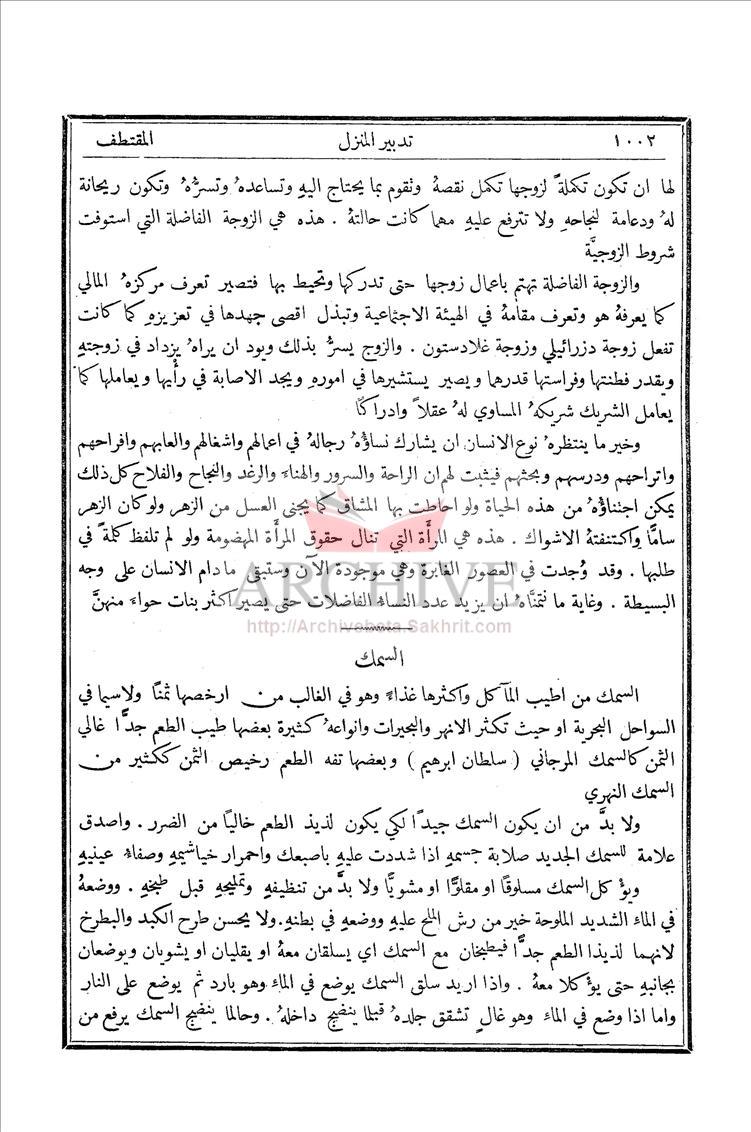 ١٠٠٢ تدبير المنزل المقتطف
لها ان تكون تكملةً لزوجها تكمل نقصهُ وتقوم بما يحتاج اليهِ وتساعدهُ وتسرُّهُ وتكون ريحانة
لهُ ودعامة لنجاحهِ ولا تترفع عليهِ مهما كانت حالتهُ . هذه هي الزوجة الفاضلة التي استوفت
شروط الزوجيَّة
والزوجة الفاضلة تهتم باعمال زوجها حتى تدركها وتحيط بها فتصير تعرف مركزهُ المالي
كما يعرفهُ هو وتعرف مقامهُ في الهيئة الاجتماعية وتبذل اقصى جهدها في تعزيزهِ كما كانت
تفعل زوجة دزرائيلي وزوجة غلادستون . والزوج يسرُّ بذلك ويود ان يراهُ يزداد في زوجتهِ
ويقدر فطنتها وفراستها قدرها ويصير يستشيرها في امورهِ ويجد الاصابة في رأْيها ويعاملها كما
يعامل الشريك شريكهُ المساوي لهُ عقلاً وادراكًا
وخير ما ينتظرهُ نوع الانسان ان يشارك نساؤُهُ رجالهُ في اعمالهم واشغالهم والعابهم وافراحهم
واتراحهم ودرسهم وبحثهم فيثبت لهم ان الراحة والسرور والهناء والرغد والنجاح والفلاح كل ذلك
يمكن اجتناؤُهُ من هذه الحياة ولو احاطت بها المشاق كما يجنى العسل من الزهر ولو كان الزهر
سامًّا واكتنفتهُ الاشواك . هذه هي المرأَة التي تنال حقوق المرأَة المهضومة ولو لم تلفظ كلمةً في
طلبها . وقد وُجدت في العصور الغابرة وهي موجودة الآن وستبقى ما دام الانسان على وجه
البسيطة . وغاية ما نتمنَّاهُ ان يزيد عدد النساء الفاضلات حتى يصير اكثر بنات حواء منهنَّ
ARCHIVE
http://Archivebeta.Sakhrit.com
السمك
السمك من اطيب المآكل واكثرها غذاءً وهو في الغالب من ارخصها ثمنًا ولاسيما في
السواحل البحرية او حيث تكثر الانهر والبحيرات وانواعهُ كثيرة بعضها طيب الطعم جدًّا غالي
الثمن كالسمك المرجاني ( سلطان ابرهيم ) وبعضها تفه الطعم رخيص الثمن ككثير من
السمك النهري
ولا بدَّ من ان يكون السمك جيدًا لكي يكون لذيذ الطعم خاليًا من الضرر . واصدق
علامة للسمك الجديد صلابة جسمهِ اذا شددت عليهِ باصبعك واحمرار خياشيمهِ وصفاء عينيهِ
ويؤكل السمك مسلوقًا او مقلوًّا او مشويًّا ولا بدَّ من تنظيفهِ وتمليحهِ قبل طبخهِ . ووضعهُ
في الماء الشديد الملوحة خير من رش الملح عليهِ ووضعهِ في بطنهِ . ولا يحسن طرح الكبد والبطرخ
لانهما لذيذا الطعم جدًّا فيطبخان مع السمك اي يسلقان معهُ او يقليان او يشويان ويوضعان
بجانبهِ حتى يؤكلا معهُ . واذا اريد سلق السمك يوضع في الماء وهو بارد ثم يوضع على النار
واما اذا وضع في الماء وهو غالٍ تشقق جلدهُ قبلما ينضج داخلهُ . وحالما ينضج السمك يرفع من